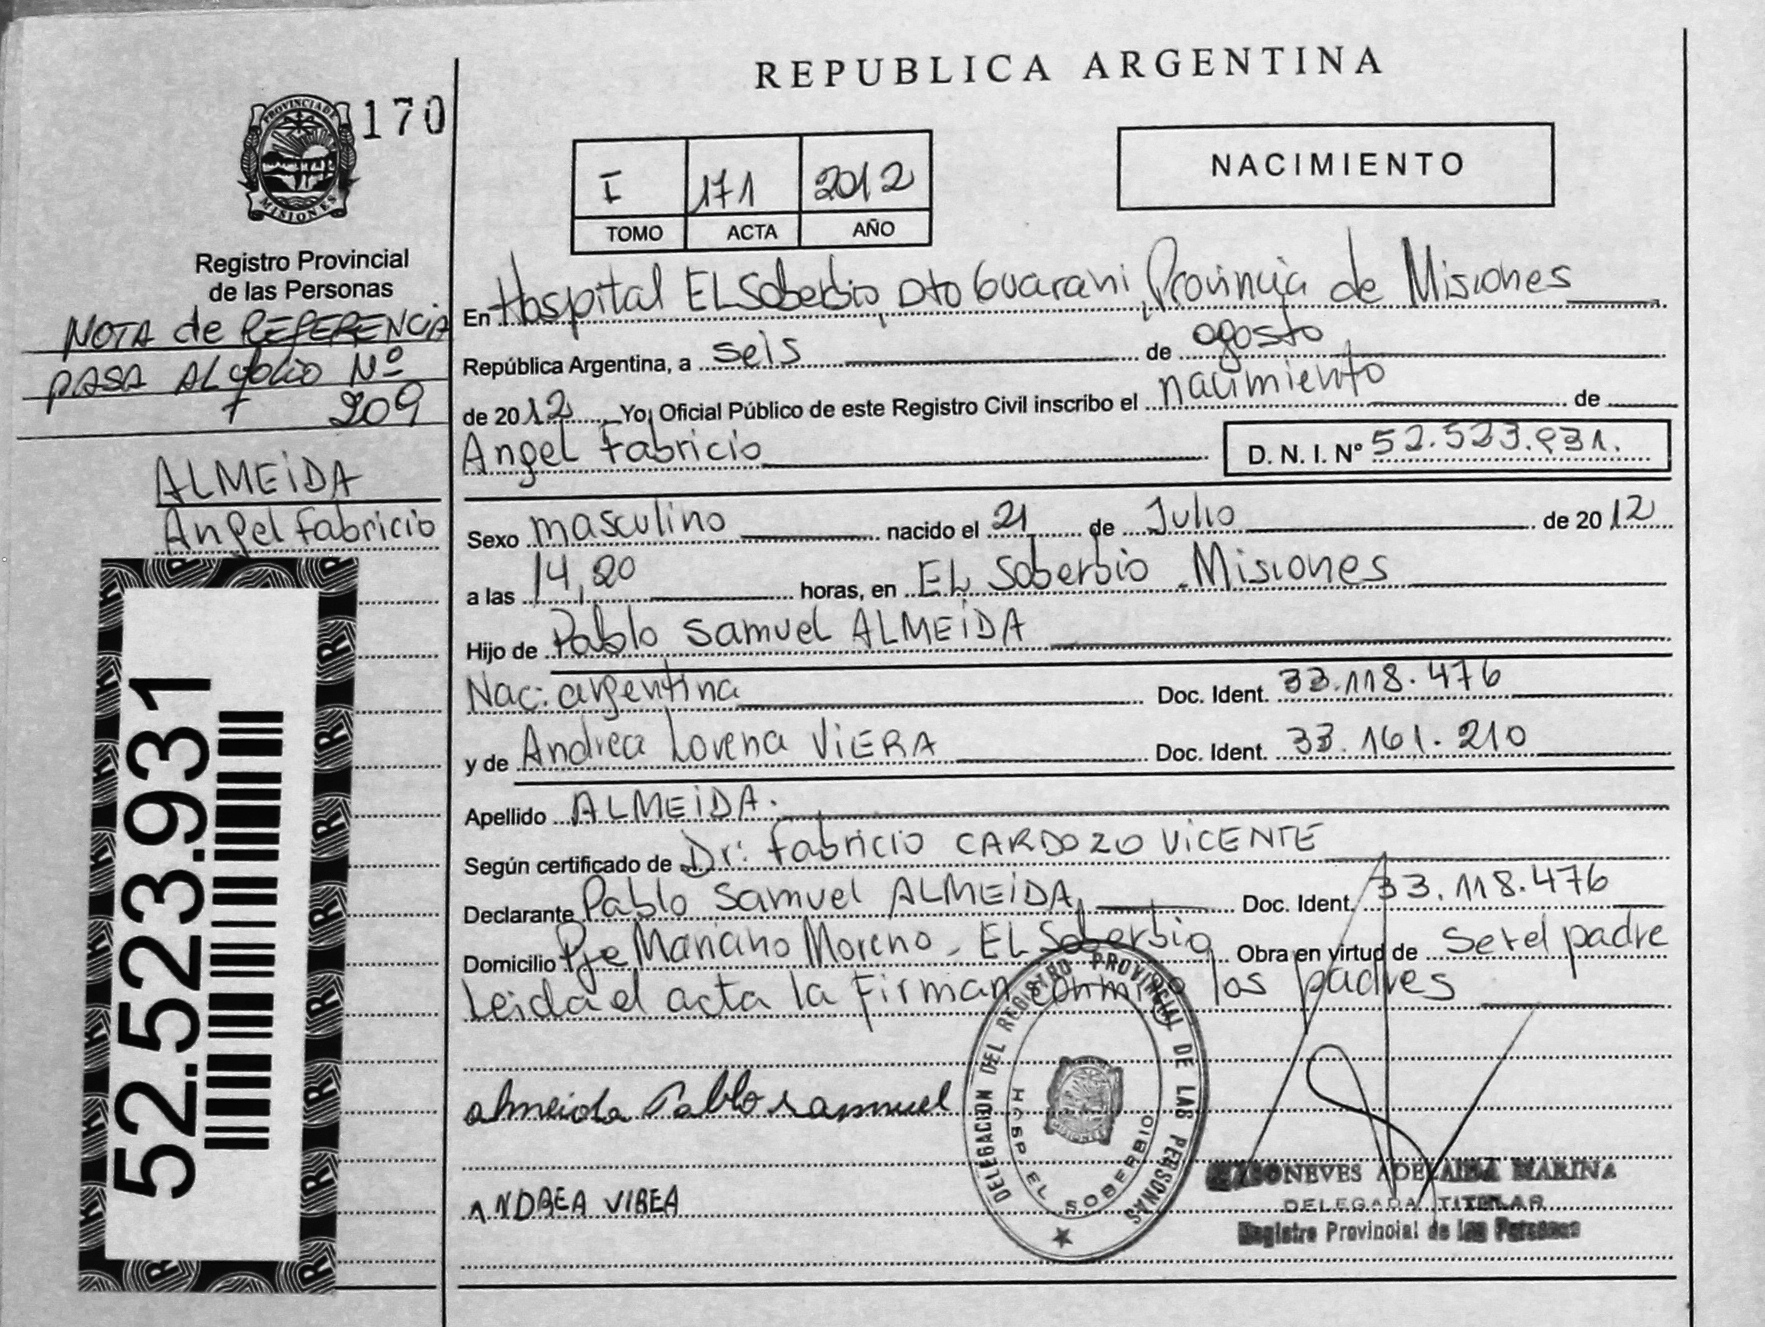 REPUBLICA ARGENTINA
PROVINCIA DE MISIONES
170
Registro Provincial
de las Personas
NOTA de REFERENCIA
PASA AL folio Nº
209
ALMEIDA
Angel Fabricio
52.523.931
I 171 2012
TOMO ACTA AÑO
NACIMIENTO
En Hospital EL Soberbio, Dto Guarani, Provincia de Misiones
República Argentina, a seis de agosto
de 2012 Yo, Oficial Público de este Registro Civil inscribo el nacimiento de
Angel Fabricio D. N. I. Nº 52.523.931.
Sexo masculino nacido el 21 de Julio de 2012
a las 14,20 horas, en EL Soberbio - Misiones
Hijo de Pablo Samuel ALMEIDA
Nac: argentina Doc. Ident. 33.118.476
y de Andrea Lorena ViERA Doc. Ident. 33.161.210
Apellido ALMEIDA.
Según certificado de Dr: Fabricio CARDOZO VICENTE
Declarante Pablo Samuel ALMEIDA, Doc. Ident. 33.118.476
Domicilio Pje Mariano Moreno - EL Soberbio Obra en virtud de ser el padre
Leida el acta la Firman conmigo los padres
almeida Pablo samuel
DELEGACION DEL REGISTRO PROVINCIAL DE LAS PERSONAS
HOSP EL SOBERBIO
ANDREA VIERA
NEVES ADELAIDA MARINA
DELEGADA TITULAR
Registro Provincial de las Personas